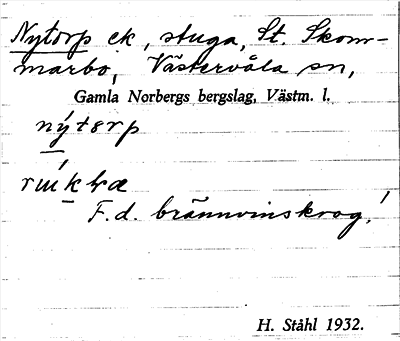 Nytorp ek, stuga, St. Skom-
marbo, Västervåla sn,
Gamla Norbergs bergslag, Västm. l.
nýtɵrp
F.d. brännvinskrog!
H. Ståhl 1932.